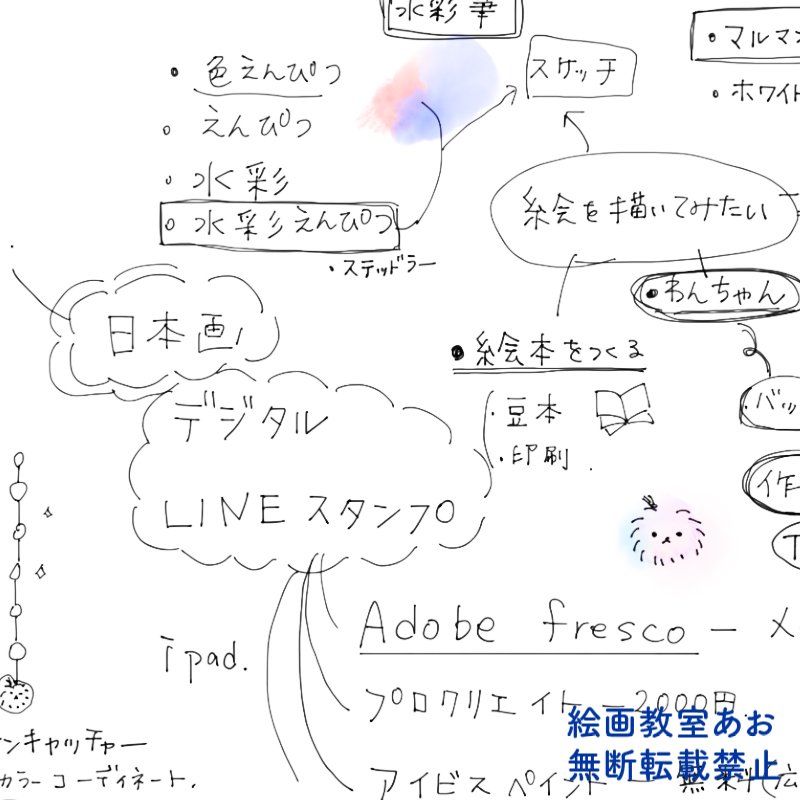 水彩筆
・色えんぴつ
・えんぴつ
・水彩
・水彩えんぴつ
・ステッドラー
スケッチ
・マルマン
・ホワイト
絵を描いてみたい
・わんちゃん
・絵本をつくる
・豆本
・印刷
・バッ
作
T
日本画
デジタル
LINEスタンプ
ipad.
Adobe fresco ー メ
プロクリエイト ー2000円.
アイビスペイント ー 無料(広
ンキャッチャー
カラーコーディネート.
絵画教室あお
無断転載禁止